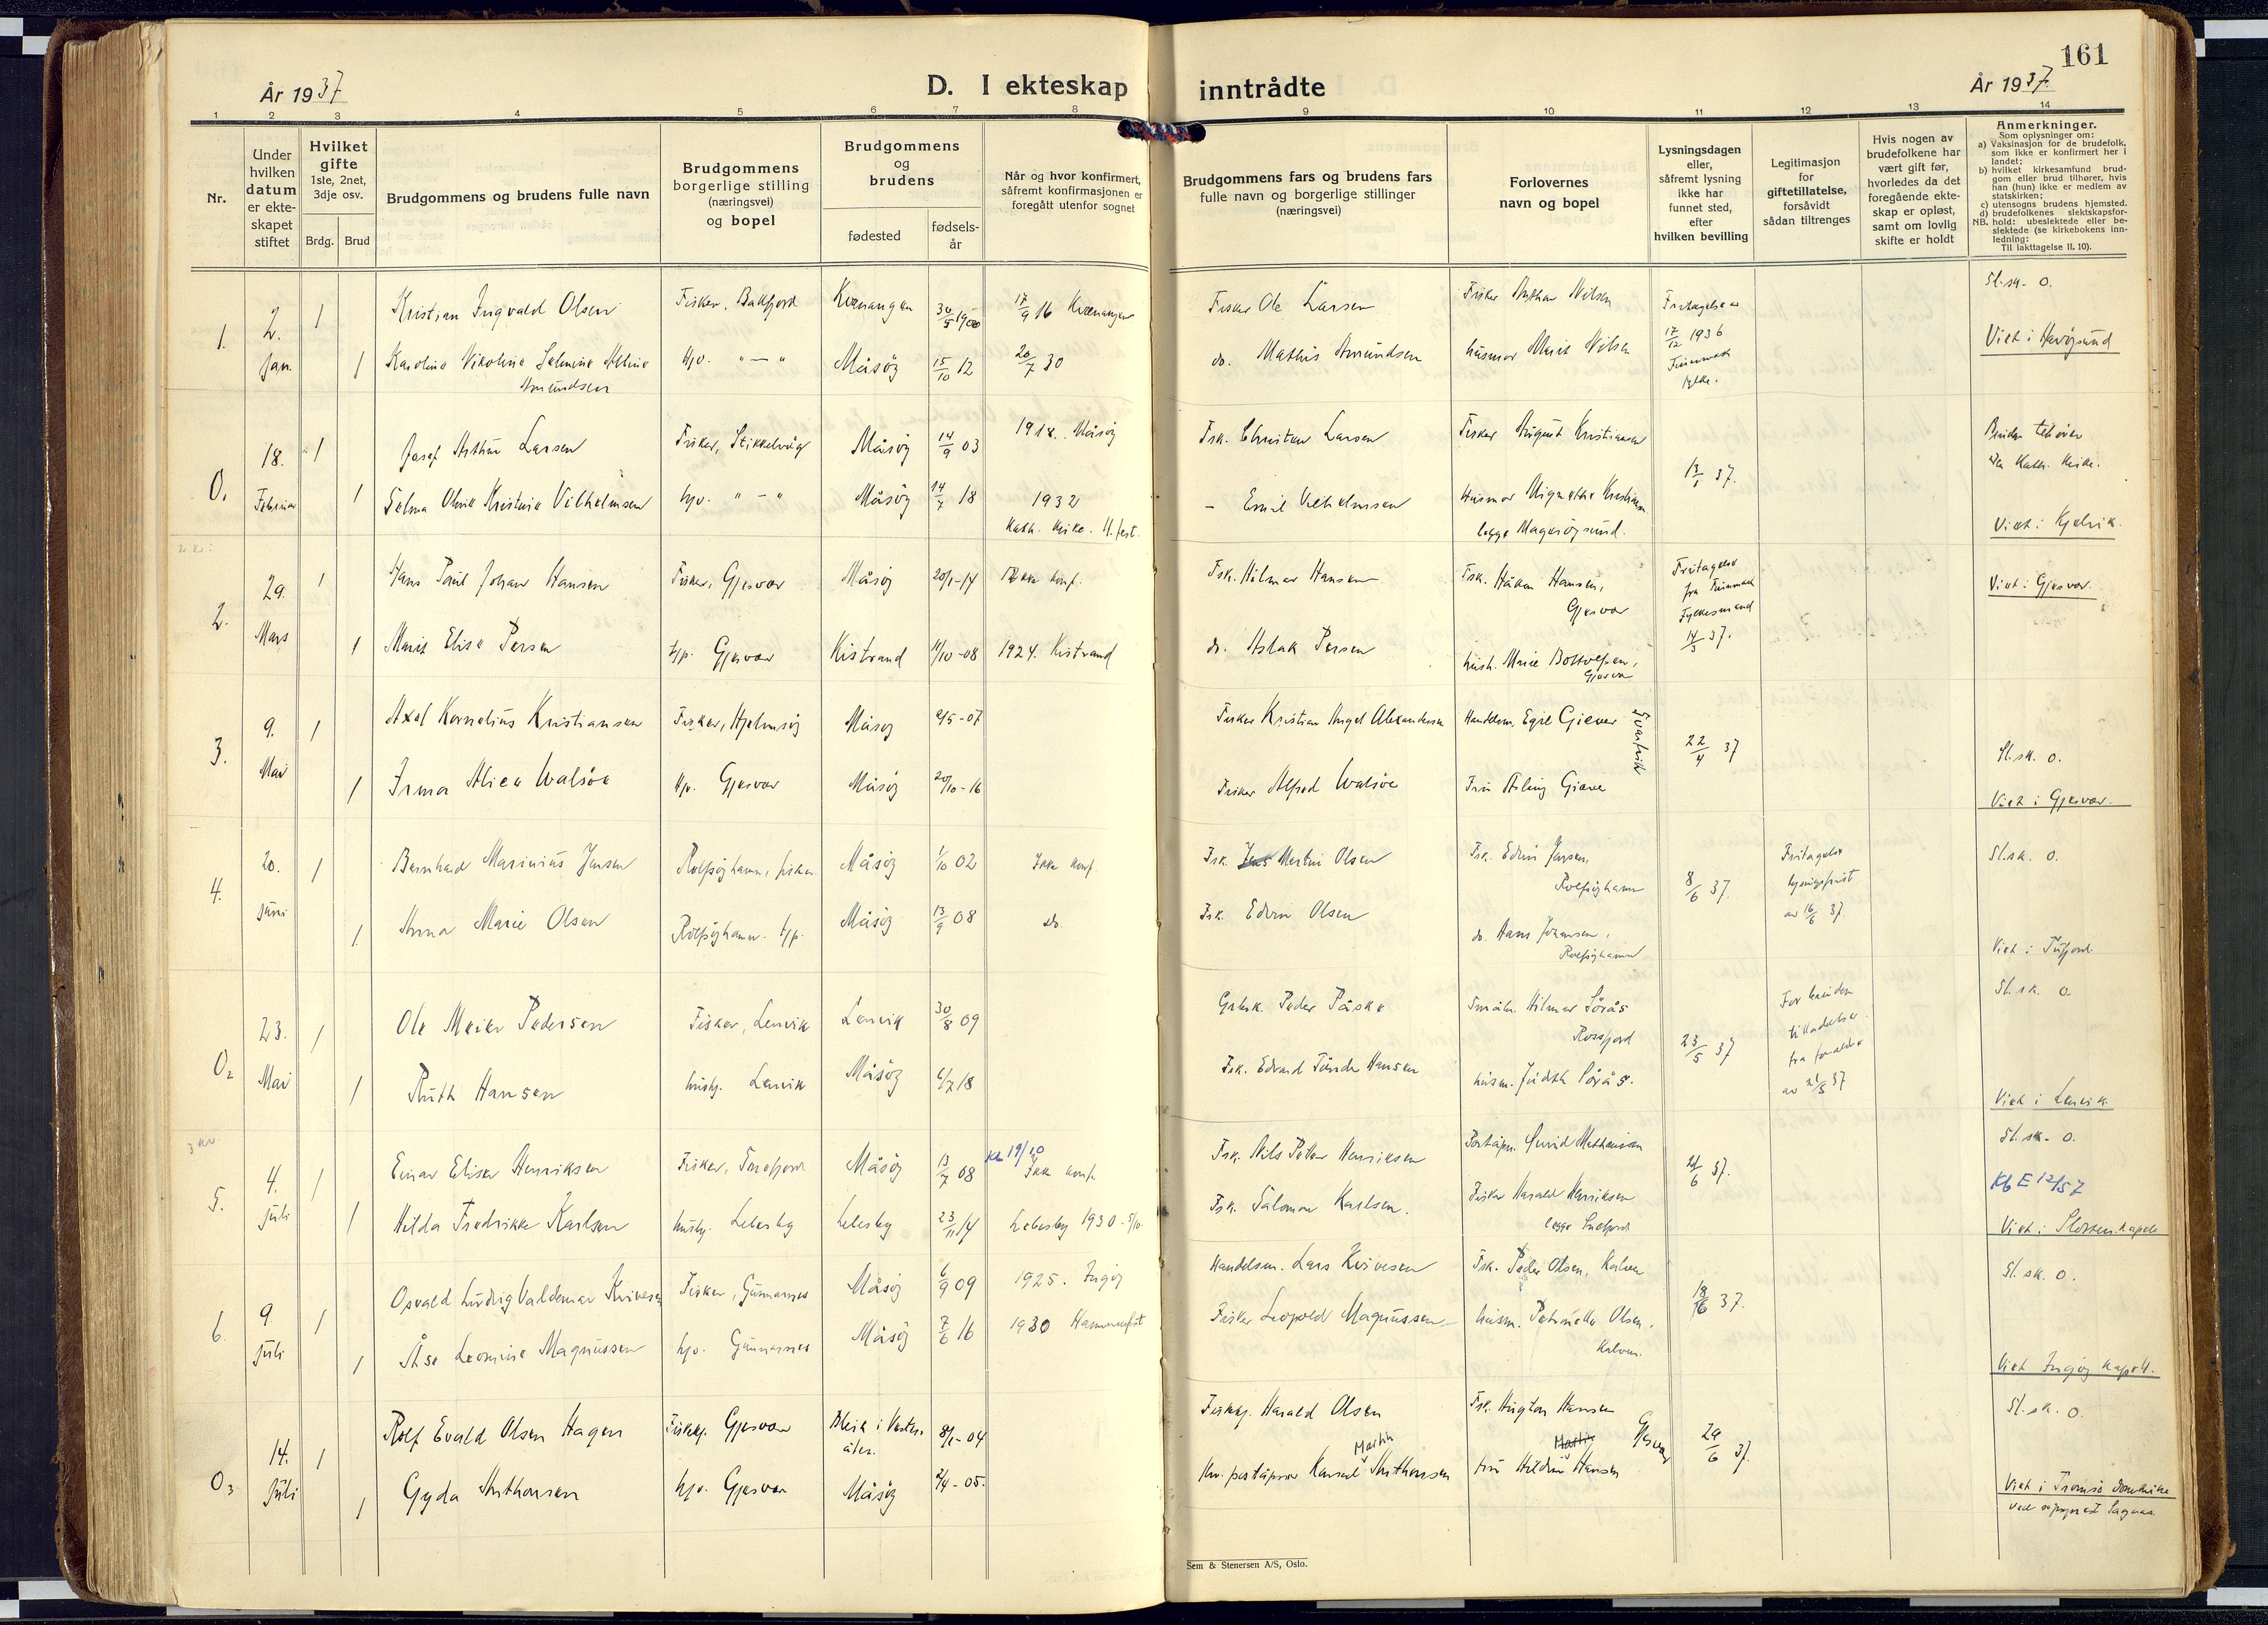 161
År 1937
D. I ekteskap inntrådte
År 1937.
1 2 3 4 5 6 7 8 9 10 11 12 13 14
Nr.
Under hvilken datum er ekteskapet stiftet
Hvilket gifte
1ste, 2net, 3dje osv.
Brdg. Brud
Brudgommens og brudens fulle navn
Brudgommens borgerlige stilling (næringsvei) og bopel
Brudgommens og brudens
fødested
fødsels-år
Når og hvor konfirmert, såfremt konfirmasjonen er foregått utenfor sognet
Brudgommens fars og brudens fars fulle navn og borgerlige stillinger (næringsvei)
Forlovernes navn og bopel
Lysningsdagen eller, såfremt lysning ikke har funnet sted, efter hvilken bevilling
Legitimasjon for giftetillatelse, forsåvidt sådan tiltrenges
Hvis nogen av brudefolkene har vært gift før, hvorledes da det foregående ekteskap er opløst, samt om lovlig skifte er holdt
Anmerkninger.
Som oplysninger om:
a) Vaksinasjon for de brudefolk, som ikke er konfirmert her i landet;
b) hvilket kirkesamfund brudgom eller brud tilhører, hvis han (hun) ikke er medlem av statskirken;
c) utensogns brudens hjemsted.
d) brudefolkenes slektskapsforhold: ubeslektede eller beslektede (se kirkebokens innledning:
NB. Til iakttagelse II. 10).
1. 2. Jan. 1 Kristian Ingvald Olsen Fisker, Bakfjord Kvænangen 30/5 1900 17/9 16 Kvænangen Fisker Ole Larsen Fisker Arthur Nilsen Fritagelse av 17/12 1936 Finnmark fylke. Sl.sk. 0.
1 Karoline Nikoline Selmine Amundsen hjv. " — " Måsöy 15/10 12 20/7 30 do. Mathis Amundsen husmor Marit Nilsen Viet i Havöysund
0. 18. Februar 1 Josef Arthur Larsen Fisker, Stikkelvåg Måsöy 14/9 03 1918. Måsöy Fsk. Christian Larsen Fisker August Kristiansen 13/1 37. Bruden tilhörer Kath. Kirke.
1 Selma Oline Kristine Vilhelmsen hjv. " — " Måsöy 14/7 18 1932 Kath. Kirke. H.fest. – Emil Vilhelmsen Husmor Kristiansen begge Magerøysund. Viet i Kjelvik.
2. 29. Mars 1 Hans Paul Johan Hansen Fisker, Gjesvær Måsöy 20/1-14 Ikke konf. Fsk. Hilmar Hansen Fsk. Håkon Hansen, Gjesvær Fritagelse fra Finnmark Fylkesmand 14/3 37. Viet i Gjesvær.
1 Marit Elise Persen hjp. Gjesvær Kistrand 11/10-08 1924. Kistrand do. Aslak Persen hush. Marie Bottolfsen, Gjesvær
3. 9. Mai 1 Axel Kornelius Kristiansen Fisker, Hjelmsöy Måsöy 9/5-07 Fisker Kristian Angel Alexandersen Handelsm. Egil Giæver Svartvik 22/4 37 Sl.sk. 0.
1 Irma Alice Walsöe Hjv. Gjesvær Måsöy 20/10-16 Fisker Alfred Walsöe Fru Asling Giæver Viet i Gjesvær.
4. 20. Juni 1 Bernhard Marinius Jensen Rolfsöyhamn, fisker Måsöy 1/10 02 Ikke konf. Fsk. Jens Martin Olsen Fsk. Edvin Jensen, Rolfsöyhamn 8/6 37. Fritagelse lysningsfrist av 16/6 37. Sl.sk. 0.
1 Anna Marie Olsen Rolfsöyhamn. hjp. Måsöy 13/9 08 do. Fsk. Edvin Olsen do. Hans Johansen, Rolfsöyhamn Viet i Tufjord.
0₂ 23. Mai 1 Ole Meier Pedersen Fisker, Lenvik Lenvik 30/8 09 Grbsk. Peder Påske Småbr. Hilmar Sörås Rossfjord 23/5 37 For bruden tilladelse fra foreldre av 21/5 37 Sl.sk. 0
1 Ruth Hansen hushj. Lenvik Måsöy 6/7 18 Fsk. Edvard Tünder Hansen husm. Judith Sörås. Viet i Lenvik.
5. 4. Juli 1 Einar Elisær Henriksen Fisker, Snefjord Måsöy 13/7 08 Ikke konf. Fsk. Nils Peder Henriksen Poståpn. Mathisen 21/6 37. Sl.sk. 0.
Kb E 12/57
1 Hilda Fredrikke Karlsen hushj. Lebesby Lebesby 23/11 14 Lebesby 1930 Fsk. Salomon Karlsen. Fisker Harald Henriksen begge Snefjord Viet i Slotten kapell
6. 9. Juli 1 Osvald Ludvig Valdemar Krivesen Fisker, Gunnarnes Måsöy 6/9 09 1925. Ingöy Handelsm. Lars Kvivesen Fsk. Peder Olsen, Kalven 18/6 37. Sl.sk. 0.
1 Åse Leonine Magnussen hjv. Gunnarnes Måsöy 7/6 16 1930 Hammerfest Fisker Leopold Magnussen husm. Petronella Olsen, Kalven. Viet Ingöy kapell.
0₃ 14. Juli 1 Rolf Evald Olsen Hagen Fiskekj. Gjesvær Bleik i Vesterålen. 8/1-04 Fiskekj. Harald Olsen Fsk. Hansen Gjesvær 29/6 37 Sl.sk. 0.
1 Gyda Anthonsen hjv. Gjesvær Måsöy 2/4-05. Hv. poståpner Konrad Martin Anthonsen fru Hansen Viet i Tromsö domkirke ved sogneprest
Sem & Stenersen A/S, Oslo.